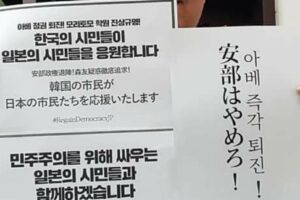 아베 정권 퇴진! 모리토모 학원 진상규명!
한국의 시민들이
일본의 시민들을 응원합니다
安部政権退陣！森友疑惑徹底追求！
韓国の市民が
日本の市民たちを応援いたします
#RegainDemocracyJP
민주주의를 위해 싸우는
일본의 시민들과
함께하겠습니다
아베 즉각 퇴진!
安部はやめろ！